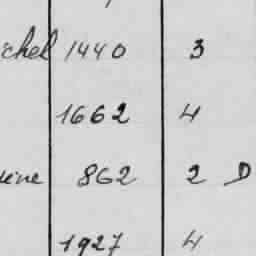 chel 1440 3
1662 4
eine 862 2 D
1927 4